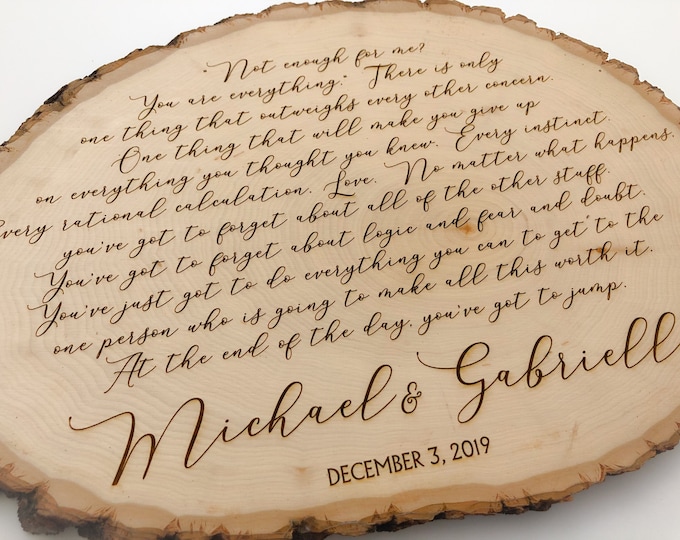 "Not enough for me?
You are everything." There is only
one thing that outweighs every other concern.
One thing that will make you give up
on everything you thought you knew. Every instinct.
Every rational calculation. Love. No matter what happens,
you've got to forget about all of the other stuff.
You've got to forget about logic and fear and doubt.
You've just got to do everything you can to get to the
one person who is going to make all this worth it.
At the end of the day, you've got to jump.
Michael & Gabriell
DECEMBER 3, 2019